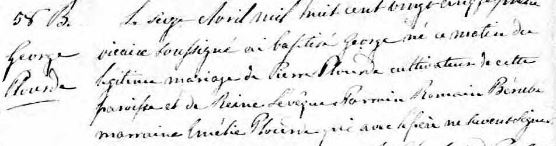 58 B. Le seize Avril mil huit cent vingt cinq
George vicaire soussigné ai baptisé George né ce matin du
Plourde légitime mariage de Pierre Plourde cultivateur de cette
paroisse et de Reine Levêque Parrain Romain Bérubé
marraine Emélie Plourde qui avec le père ne savent signer